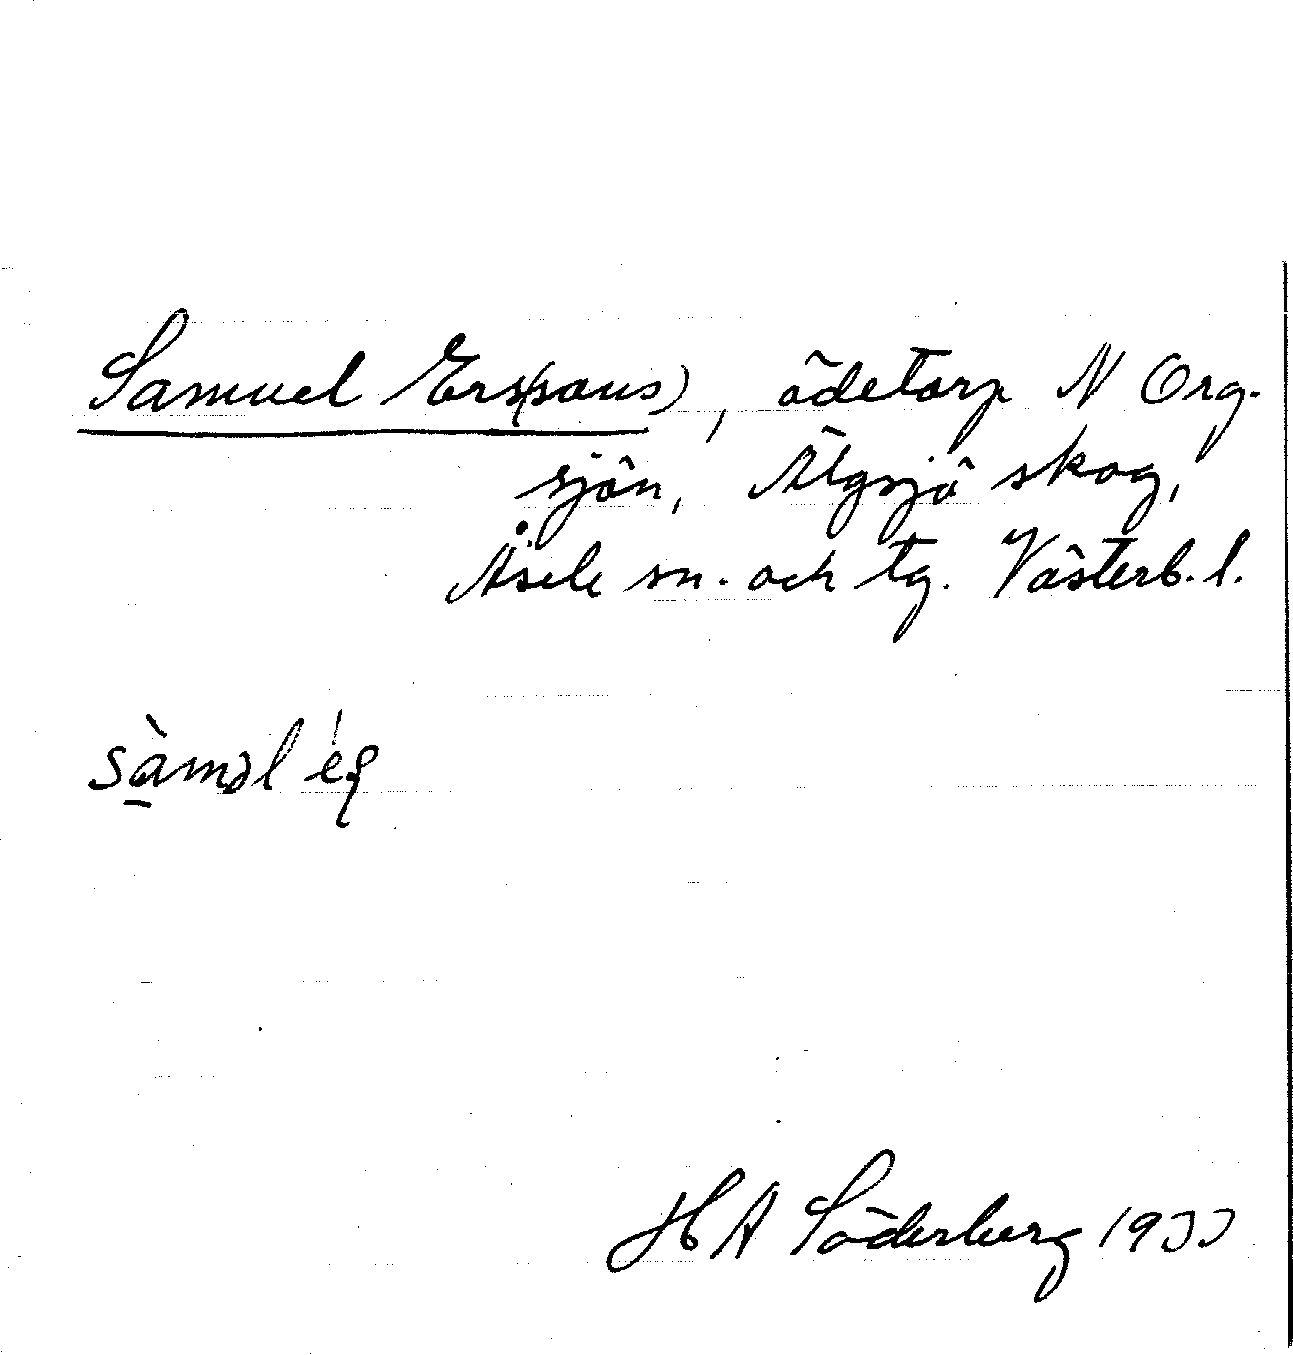 Samuel Ers(sons), ödetorp N Org-
sjön, Älgsjö skog,
Åsele sn. och tg. Västerb. l.
H A Söderberg 1933